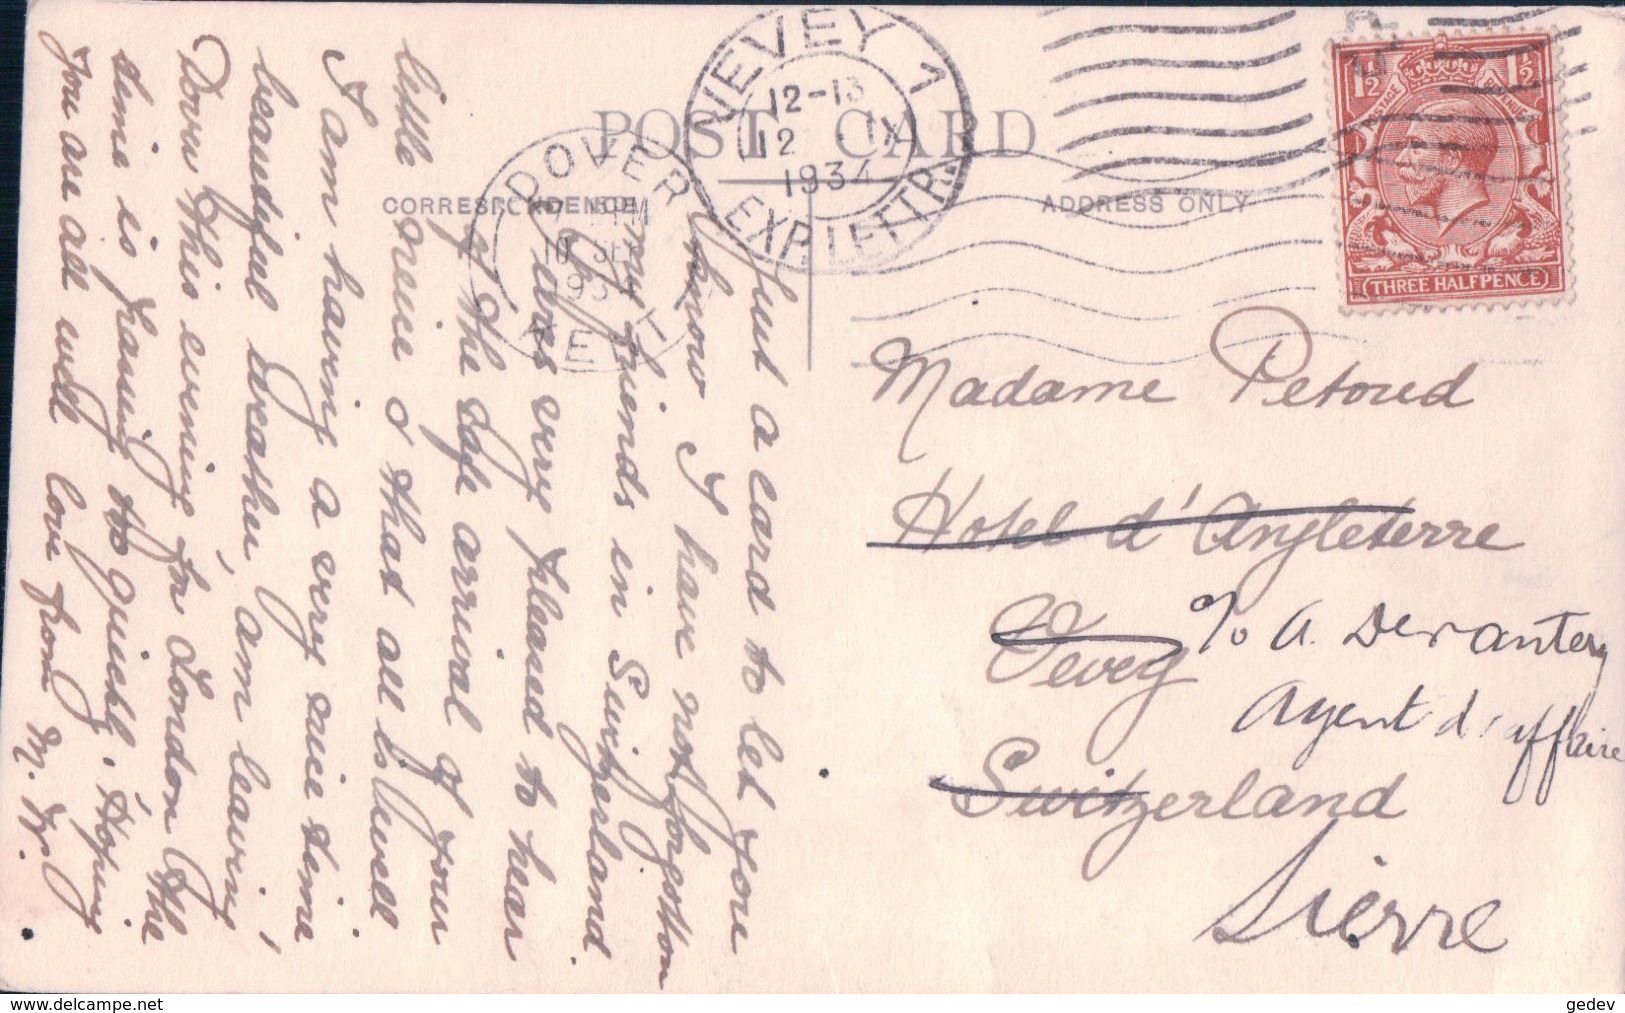 POST CARD
CORRESPONDENCE
ADDRESS ONLY
VEVEY 1
12-13
12 IX
1934
EXP. LETTR.
DOVER
10 SEP
1934
KENT
1½ 1½
POSTAGE REVENUE
THREE HALFPENCE
Just a card to let you
know I have not forgotton
my friends in Switzerland
I was very pleased to hear
of the safe arrival of your
little and that all is well
I am having a very nice time
beautiful weather, am leaving
Dover this evening for London the
time is passing to quickly, Hoping
you are all well love from M. W.
Madame Petoud
Hotel d'Angleterre
Vevey
Switzerland
c/o A. Devantery
Agent d'affaire
Sierre
gedev